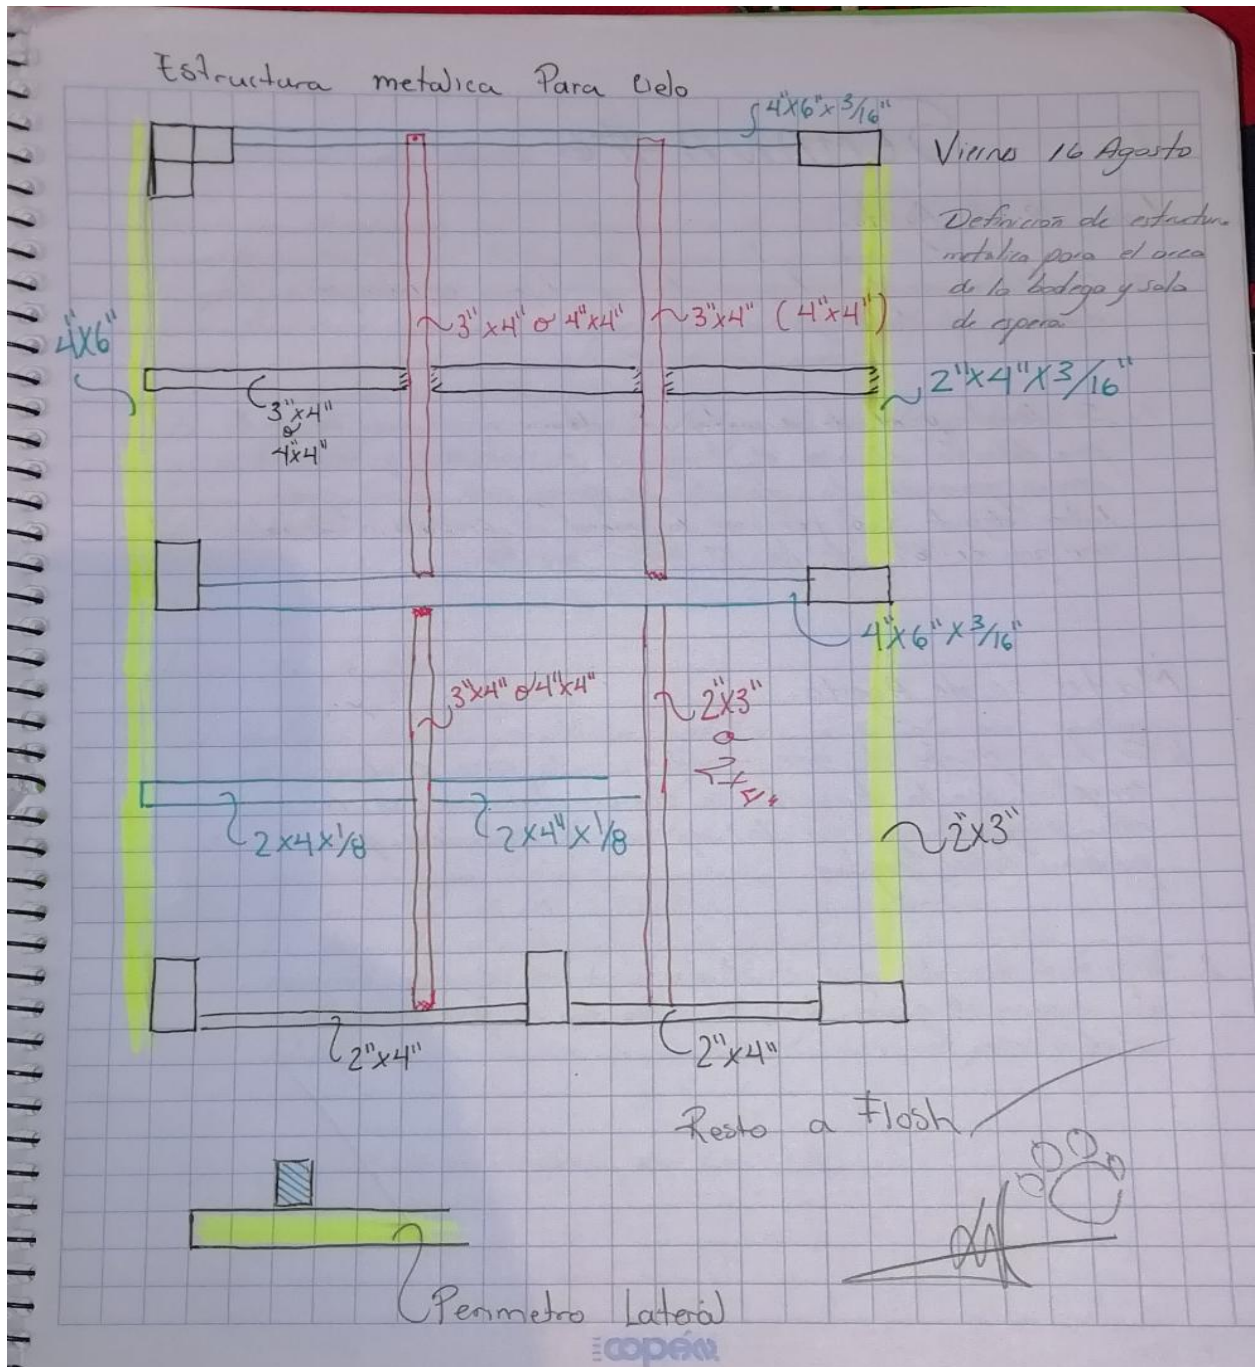 Estructura metalica Para Cielo
4"x6"x3/16"
Viernes 16 Agosto
Definición de estructura
metalica para el area
de la bodega y sala
de espera
4"x6"
3"x4" o 4"x4"
3"x4" (4"x4")
2"x4"x3/16"
3"x4"
o
4"x4"
4"x6"x3/16"
3"x4" o 4"x4"
2"x3"
o
2x4x1/8
2x4"x1/8
2"x3"
2"x4"
2"x4"
Resto a Flosh
Perimetro Lateral
copán